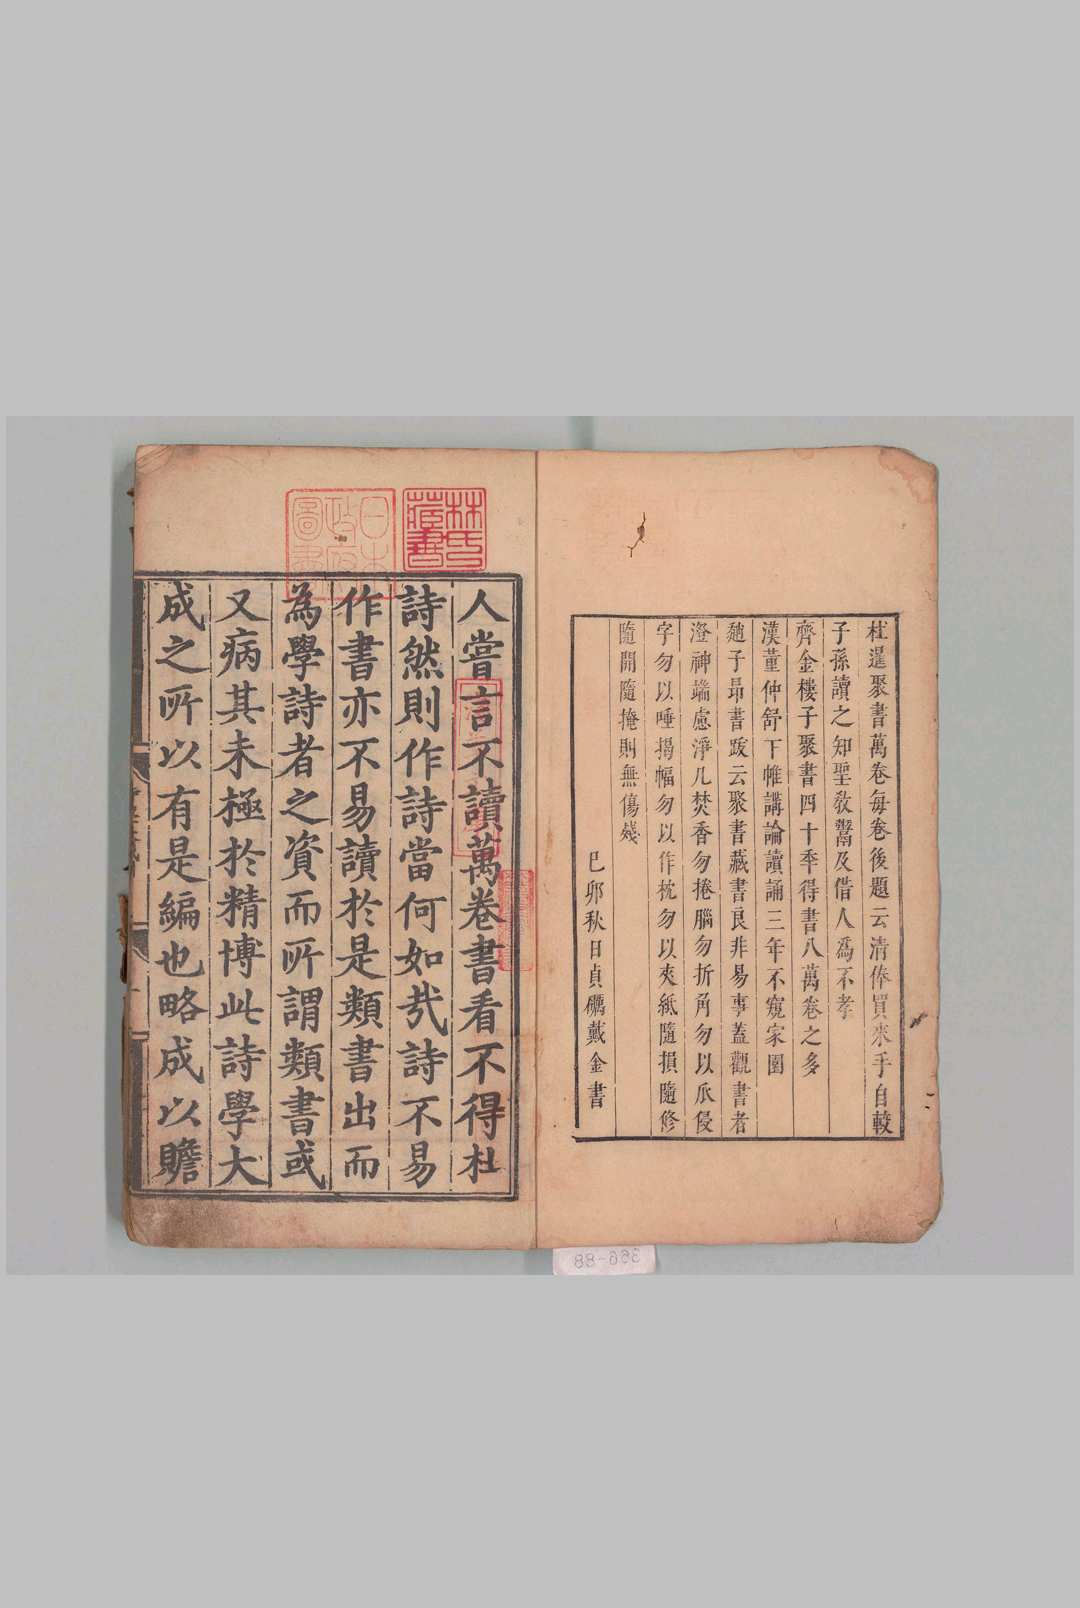 杜暹聚書萬卷每卷後題云清俸買來手自較
子孫讀之知聖敎鬻及借人爲不孝
齊金樓子聚書四十年得書八萬卷之多
漢董仲舒下帷講論讀誦三年不窺家園
趙子昻書跋云聚書藏書良非易事蓋觀書者
澄神端慮淨几焚香勿捲腦勿折角勿以爪侵
字勿以唾揭幅勿以作枕勿以夾紙隨損隨修
隨開隨掩則無傷殘
巳卯秋日貞礪戴金書
林氏
藏書
日本
政府
圖書
人嘗言不讀萬卷書看不得杜
詩然則作詩當何如㢤詩不易
作書亦不易讀於是類書出而
為學詩者之資而所謂類書或
又病其未極於精博此詩學大
成之所以有是編也略成以贍